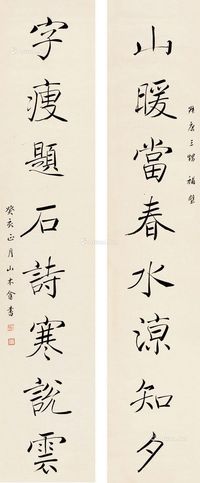 山暖當春水涼知夕
字瘦題石詩寒說雲
癸亥正月山木龕書